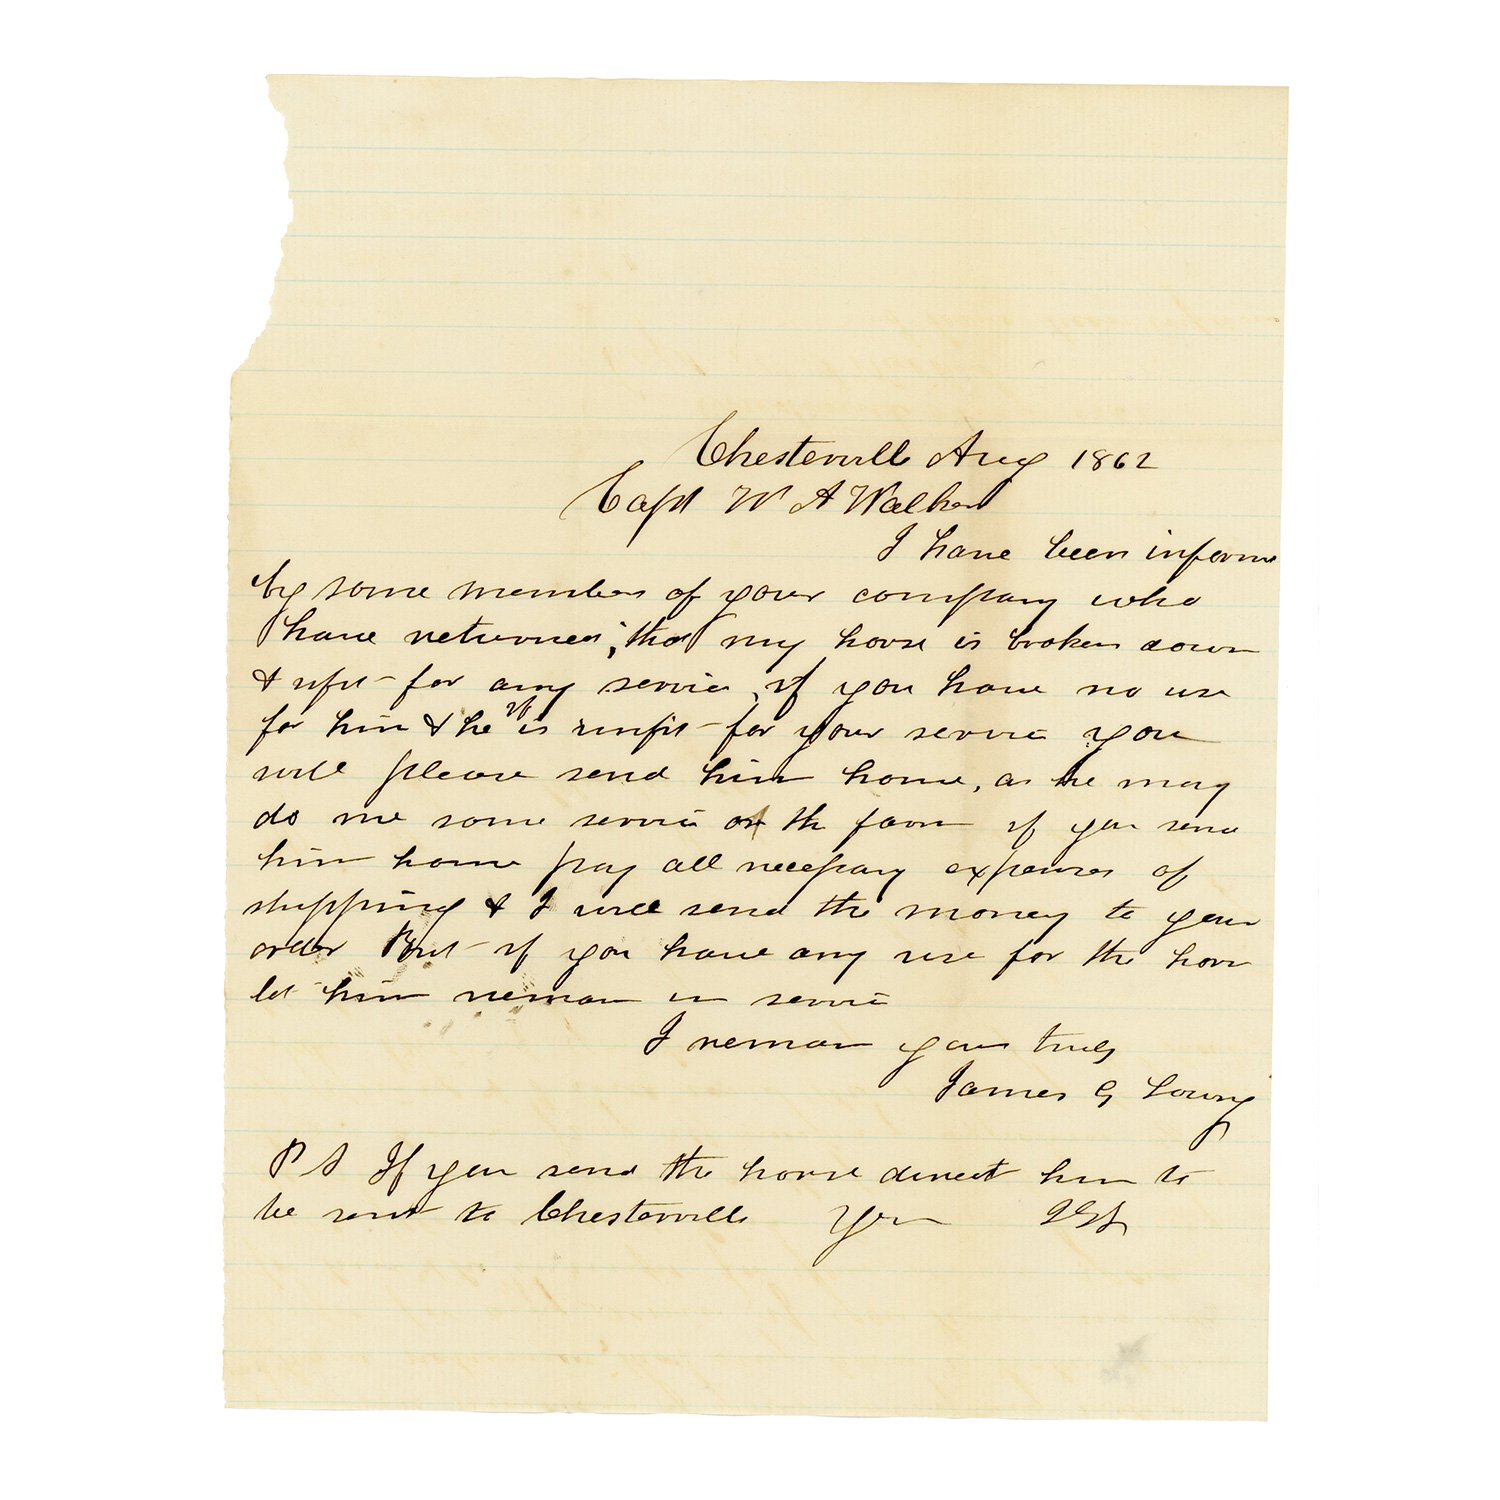 Chesterville Aug 1862
Capt W A Walker
I have been informe
by some members of your company who
have returned, that my horse is broken down
& upit for any service, if you have no use
for him & he if is unfit for your service you
will please send him home, as he may
do me some service on the farm if you send
him home pay all necessary expenses of
shipping & I will send the money to your
order But if you have any use for the horse
let him remain in service
I remain yours truly
James G Lowry
P S If you send the horse direct him to
be sent to Chesterville Yours JGL